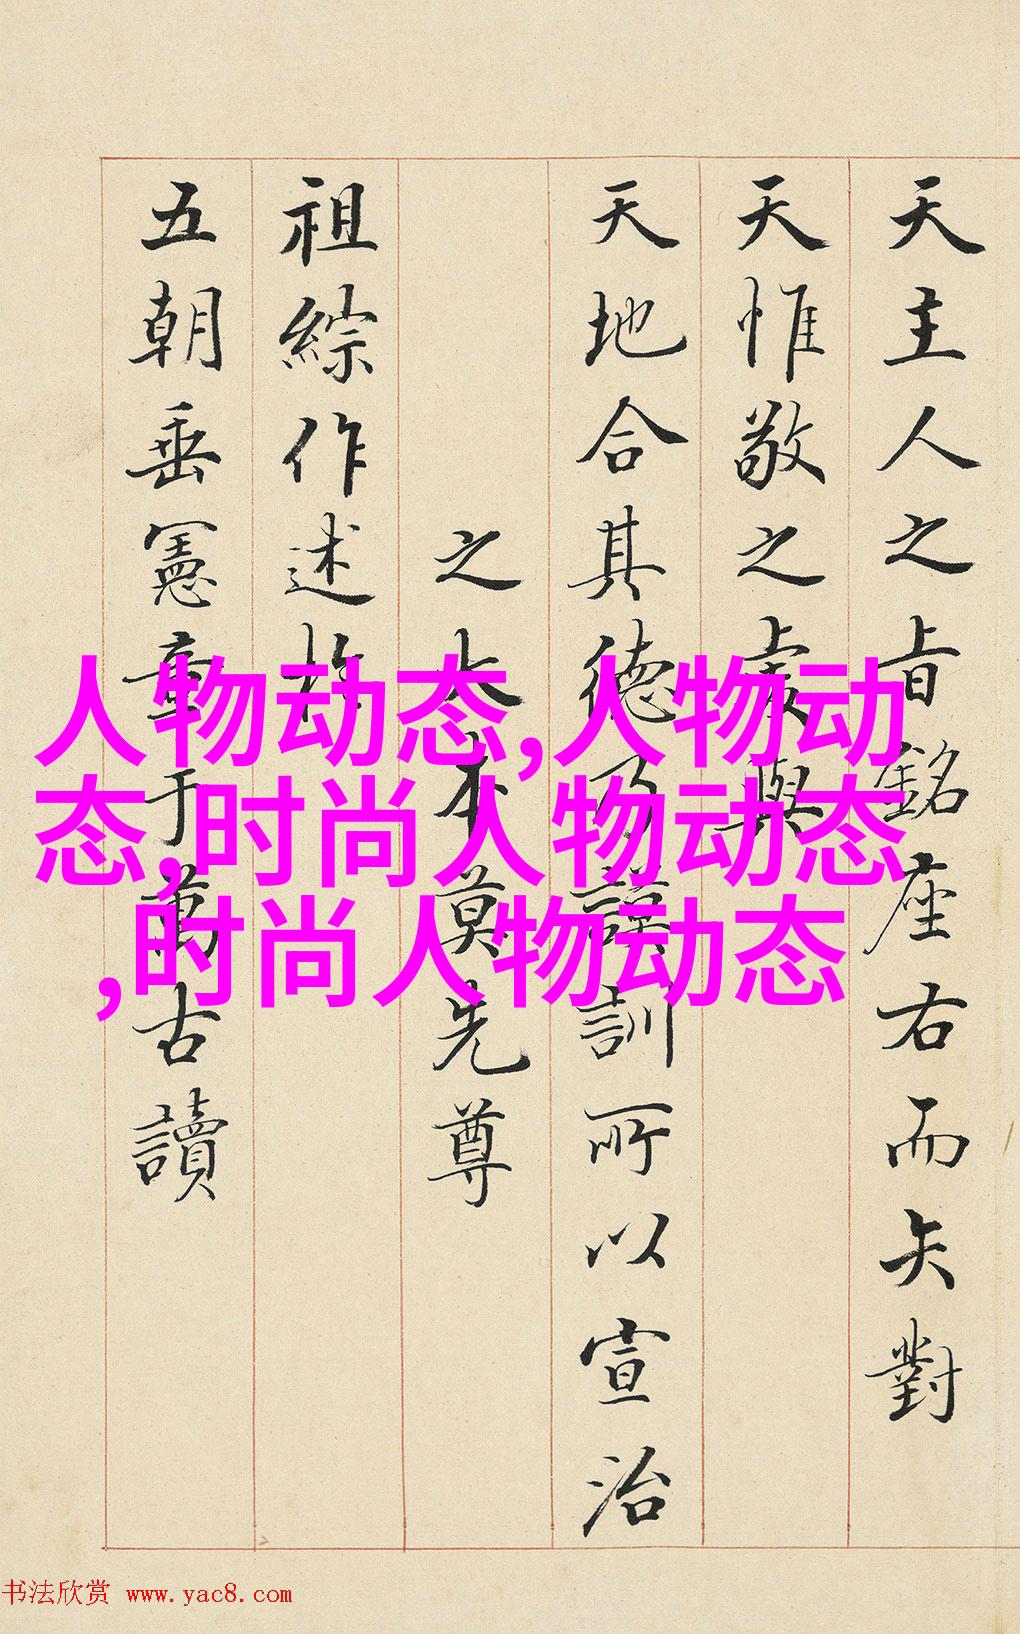 天主人之旨銘座右而矢對
天惟敬之與
天地合其德乃訓所以宣治
之大本莫先尊
祖綜作述
五朝垂憲章于萬古讀
人物动态,人物动
态,时尚人物动态
,时尚人物动态
书法欣赏 www.yac8.com